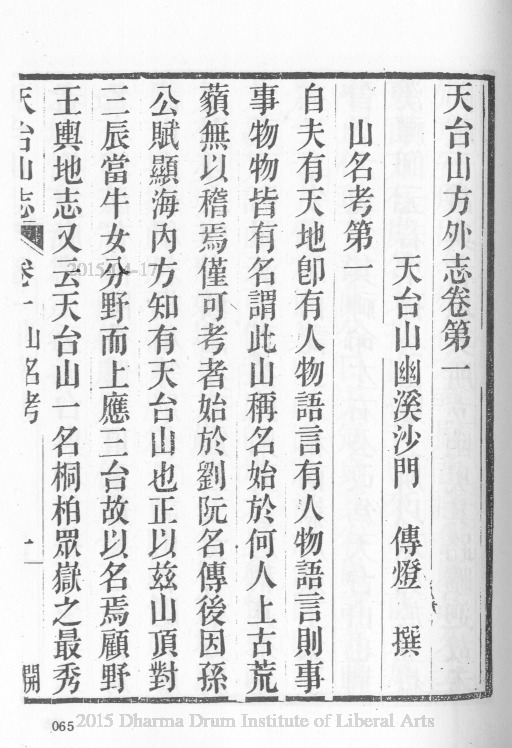 天台山方外志卷第一
天台山幽溪沙門 傳燈 撰
山名考第一
自夫有天地卽有人物語言有人物語言則事
事物物皆有名謂此山稱名始於何人上古荒
蘱無以稽焉僅可考者始於劉阮名傳後因孫
公賦顯海內方知有天台山也正以茲山頂對
三辰當牛女分野而上應三台故以名焉顧野
王輿地志又云天台山一名桐柏眾嶽之最秀
天台山志 卷一 山名考 一
065
2015 Dharma Drum Institute of Liberal Arts